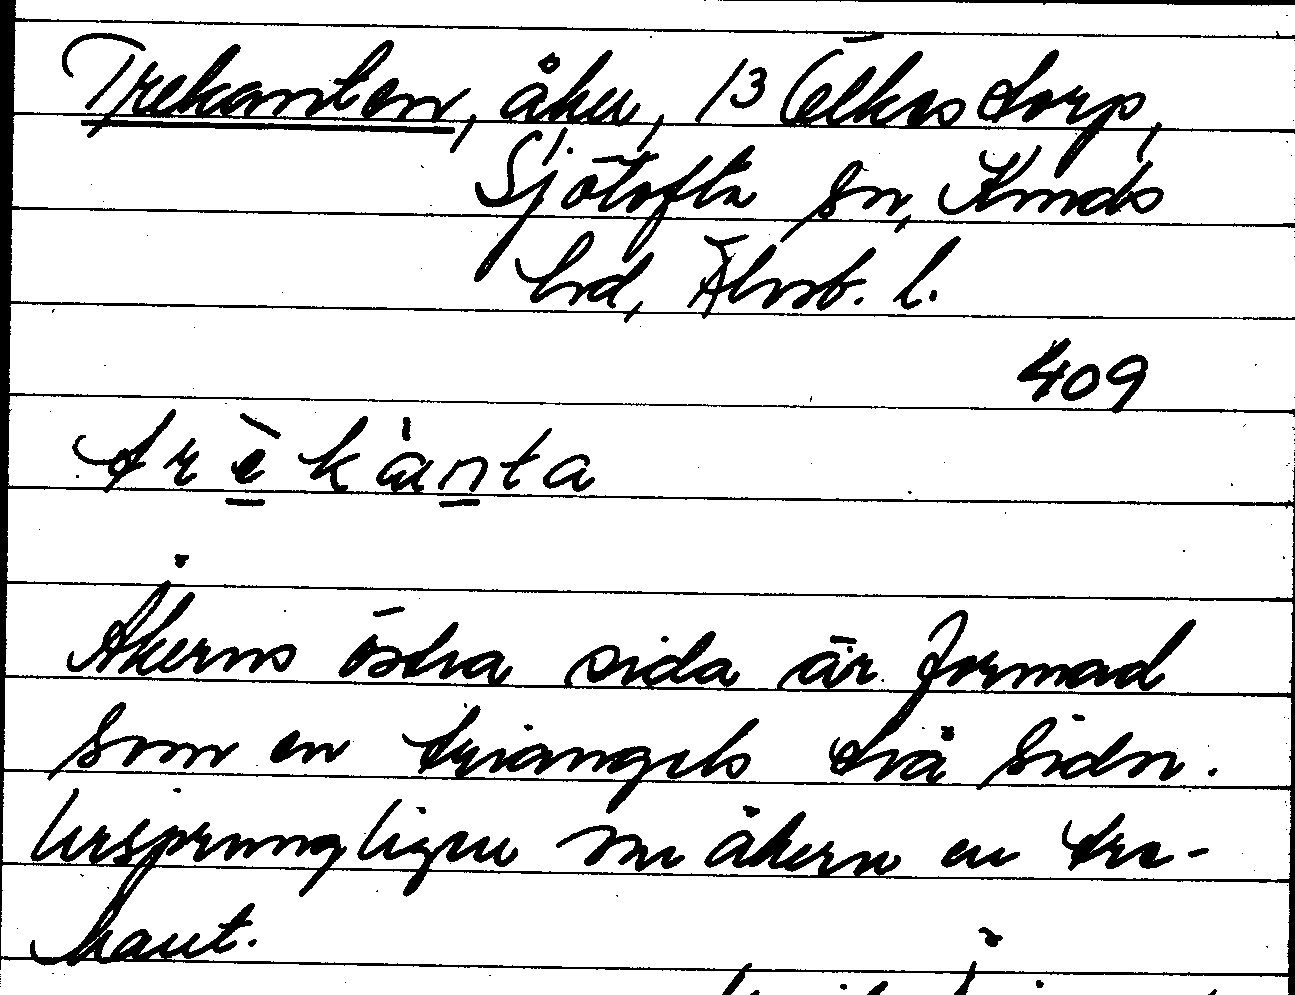 Trekanten, åker, 13 Ölkastorp,
Sjötofta sn, Kinds
hd, Älvsb. l.
409
trèkánta
Åkerns östra sida är formad
som en triangels två sidor.
Ursprungligen var åkern en tre-
kant.